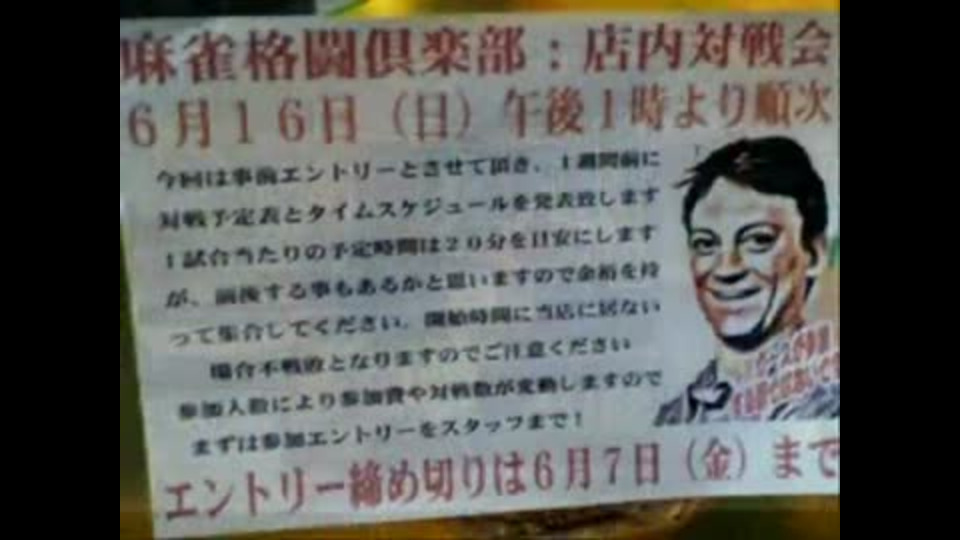 麻雀格闘倶楽部:店内対戦会
6月16日(日)午後1時より順次
今回は事前エントリーとさせて頂き、1週間前に
対戦予定表とタイムスケジュールを発表致します
1試合当たりの予定時間は20分を目安にします
が、前後する事もあるかと思いますので余裕を持
って集合してください。開始時間に当店に居ない
場合不戦敗となりますのでご注意ください
参加人数により参加費や対戦数が変動しますので
まずは参加エントリーをスタッフまで!
エントリー締め切りは6月7日(金)まで